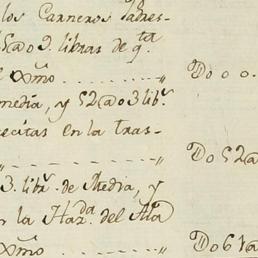 los Carneros Padres-
5@ o 9. libras de q.ta
el Exmo ........... " Do o o.
media, y 52@ o 3 lib.s
ecitas en la tras-
" ........... " Do 52@
3. lib.s de Media, y
en la Haz.da del Alta
Exmo ........... " Do 61@